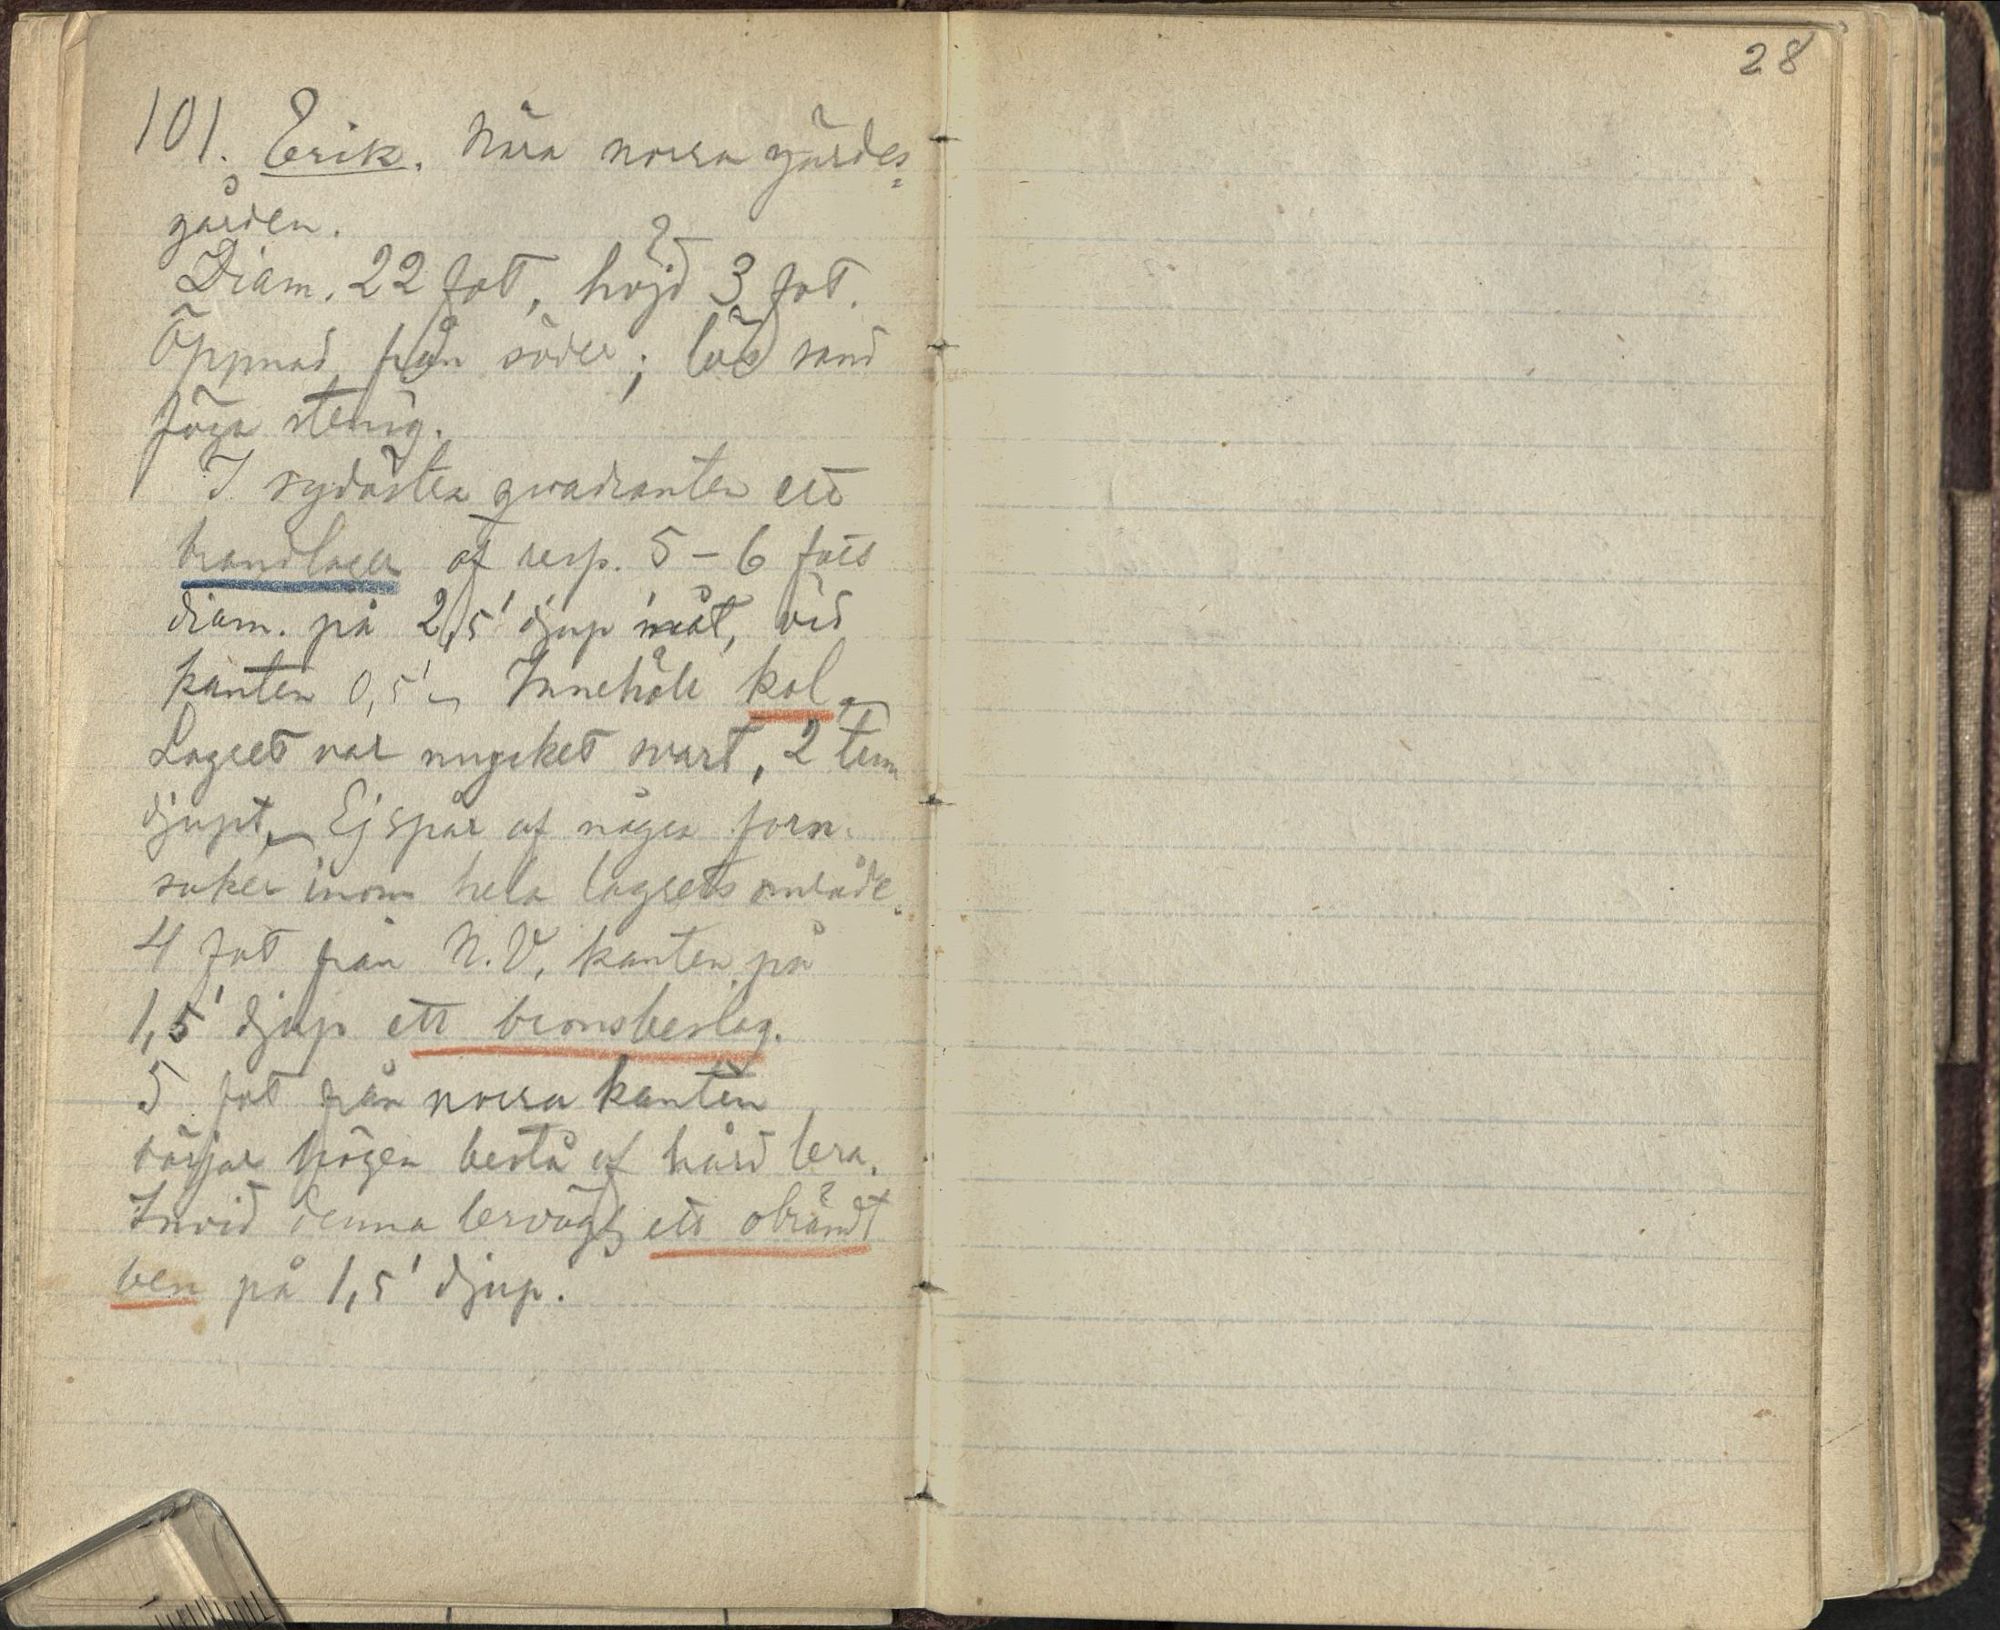 28
101. Erik. Nära norra gärdes=
gården.
Diam. 22 fot, höjd 3 fot.
Öppnad från söder; lös sand
föga stenig.
I sydöstra qvadranten ett
brandlager af resp. 5 - 6 fots
diam. på 2,5' djup inåt, vid
kanten 0,5' Innehöll kol
Lagret var mycket svart, 2 tum
djupt, Ej spår af några forn-
saker inom hela lagrets område.
4 fot från N.V. kanten på
1,5' djup ett bronsbeslag.
5 fot från norra kanten
börjar högen bestå af hård lera.
Invid denna lervägg ett obrändt
ben på 1,5' djup.